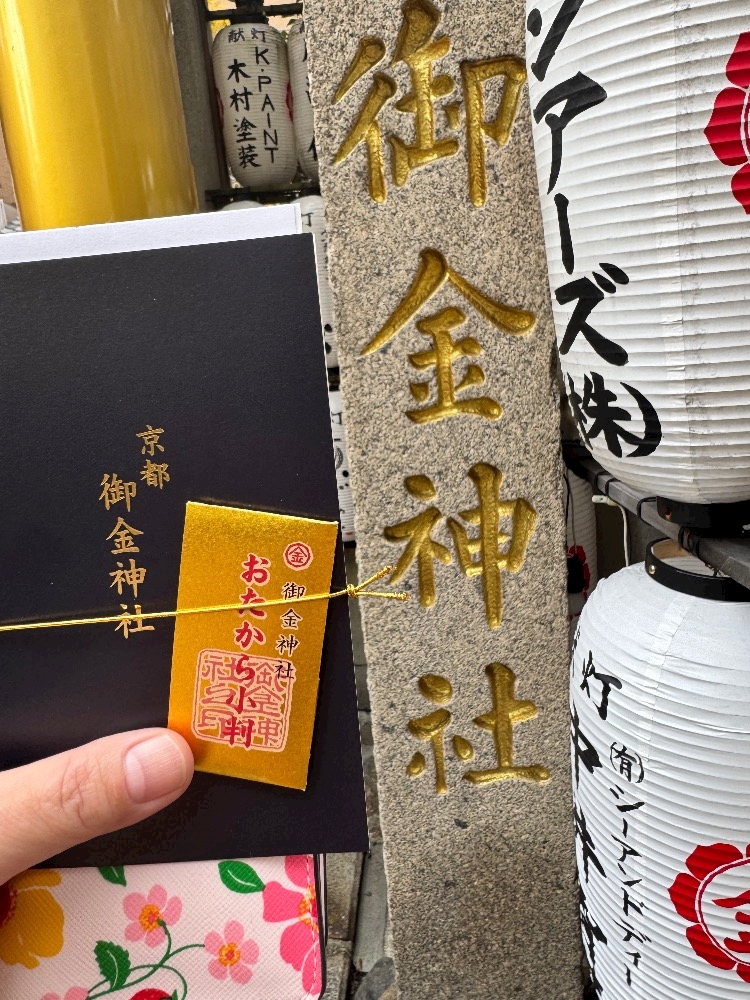 献灯
K・PAINT
木村塗装
御金神社
シアーズ㈱
京都
御金神社
金
御金神社
おたから小判
灯
㈲シーアンドディー